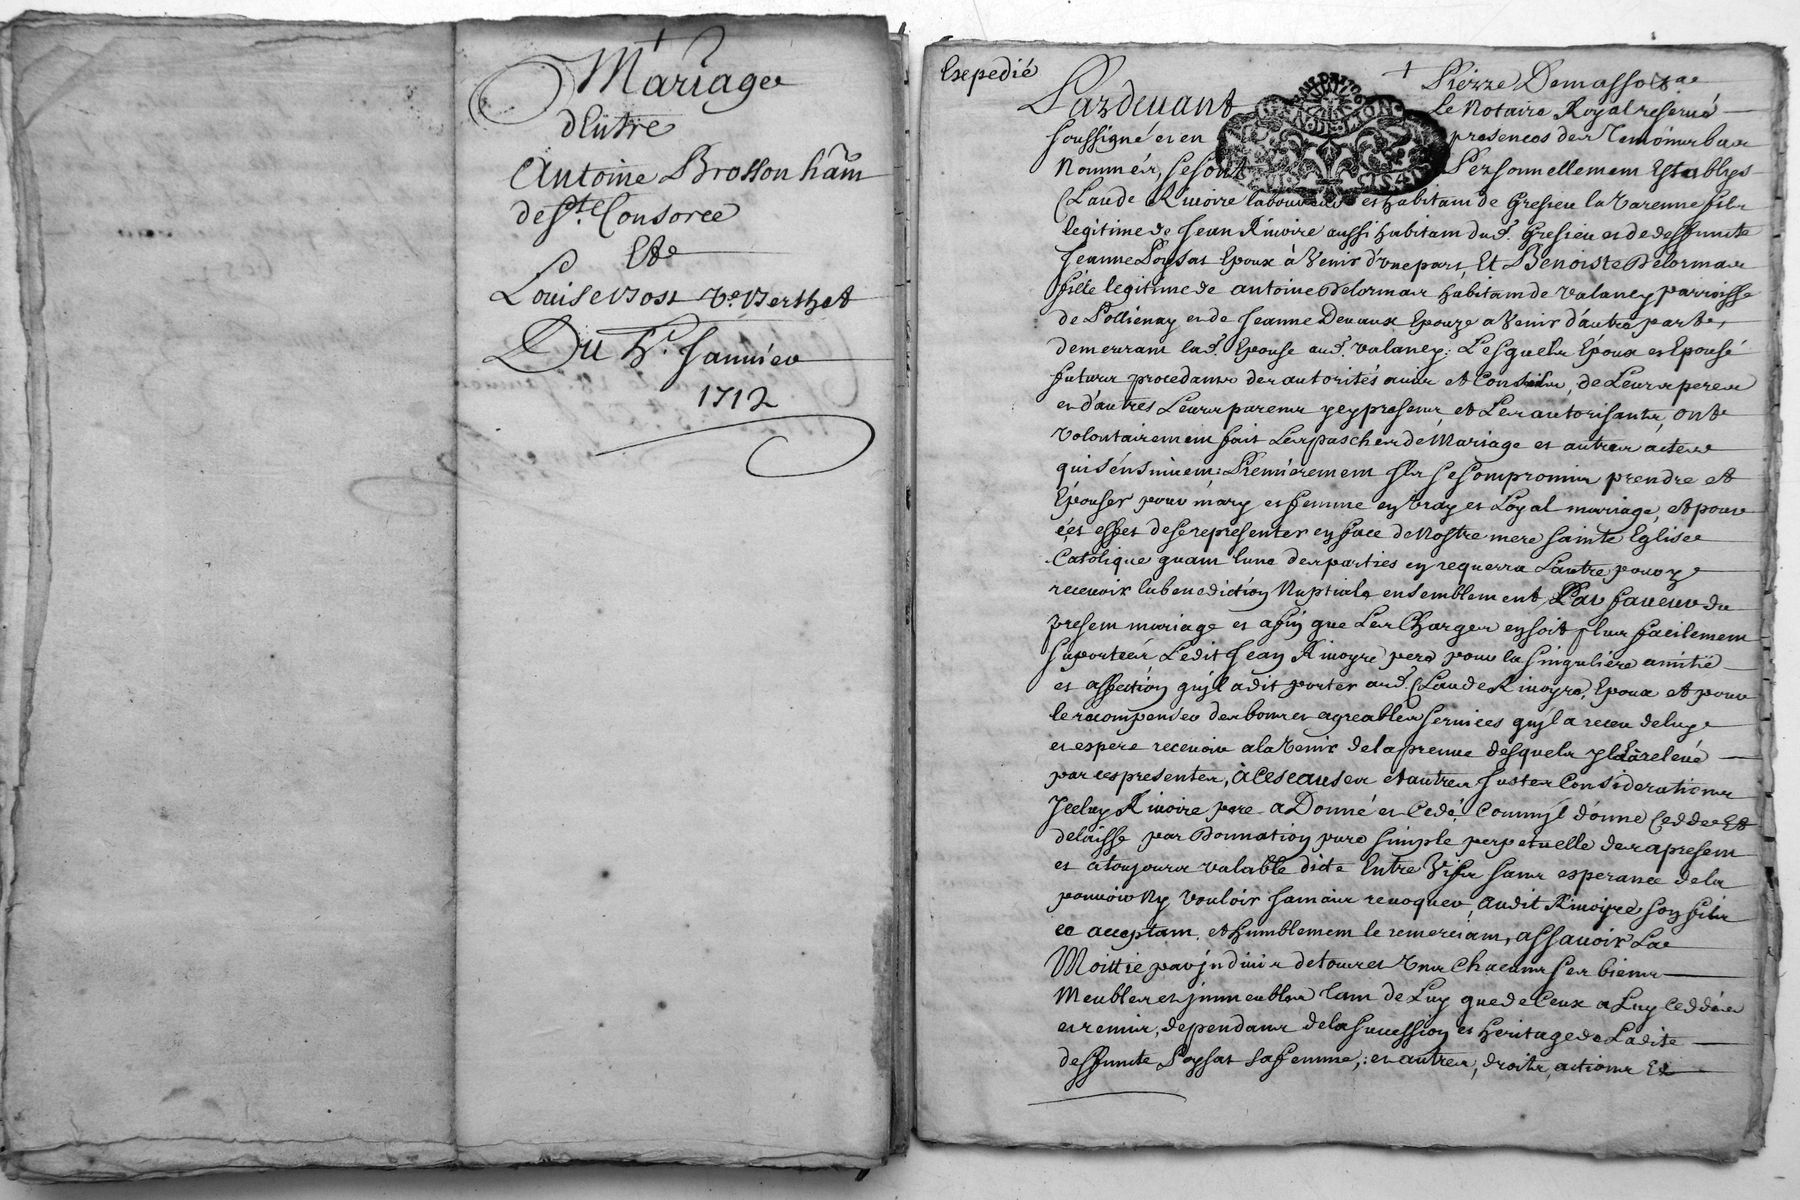 Mariage
d'Entre
Antoine Brosson ham
de Ste Consorce
Et
Louise Vost Ve Berthet
Du 4e Janvier
1712
Expedié
Pardevant Pierre Demassoz
Le Notaire Royal reservé
soussigné et en presences des Temoins bas
Nommés, se sont Personnellement Establys
Claude Rivoire laboureur et habitant de Gresieu la Varenne fils
legitime de Jean Rivoire aussi habitant dud. Gresieu et de deffunte
Jeanne Poysat Epoux à Venir d'une part, Et Benoiste Delormas
fille legitime de antoine Delormas habitant de valaney parroisse
de Pollienay et de Jeanne Devaux Epouze a Venir d'autre part,
demeurant lad. Epouse aud. valaney; Lesquels Epoux et Epouse
futurs procedants des autorités avis et Conseils, de Leurs peres
et d'autres Leurs parents yey presents et Les autorisants, ont
volontairement fait Les pasches de Mariage et autres actes
qui s'ensuivent: Premierement Ils se sont promis prendre et
Epouser pour mary et femme en vray et Loyal mariage, et pour
cet effet de se representer en face de Nostre mere Sainte Eglise
Catolique quant lune des parties en requerra Lautre pour y
recevoir la benediction Nuptiale ensemblement, Par faveur du
present mariage et afin que Les Charges en soit plus facilement
suportées Ledit Jean Rivoyre pere pour la singuliere amitié
et affection qu'jl a dit porter aud. Claude Rivoyre, Epoux et pour
le recompenser des bons et agreables services qu'jl a receu de luy
et espere recevoir a la venir de la preuve desquels jl l'a relevé
par ces presentes, à Ces causes et autres Justes Considerations
Jceluy Rivoire pere a Donné et Cedé, Comm'jl donne Cedde Et
delaisse par Donnation pure simple perpetuelle des a present
et a toujours valable dicte Entre Vifs sans esperance de la
pouvoir Ny vouloir Jamais revoquer, audit Rivoyre son fils
ce acceptant, et humblement le remerciant, assavoir La
Moittie par jndivis de tous et Uns Chacuns ses biens
Meubles et jmmeubles tant de Luy que de Ceux a Luy Ceddés
et remis, dependants de la succession et heritage de Ladite
deffunte Poysat sa femme, et autres, droits, actions Et